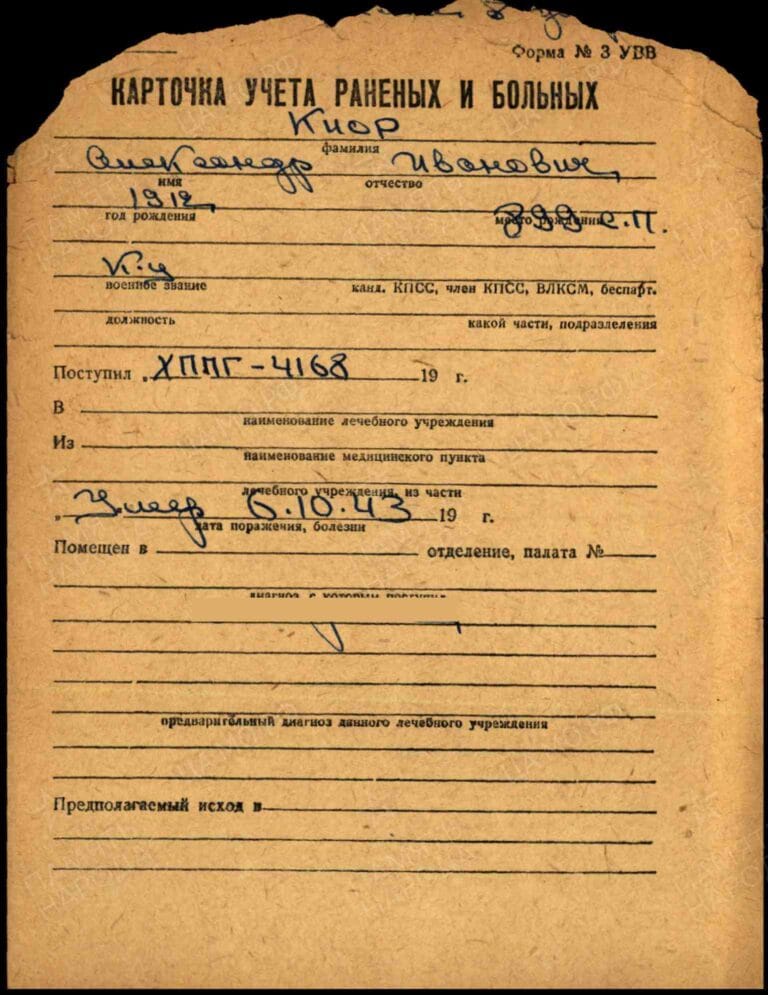 Форма № 3 УВВ
КАРТОЧКА УЧЕТА РАНЕНЫХ И БОЛЬНЫХ
Киор
фамилия
Александр Иванович
имя отчество
1912
год рождения место рождения 899 с.п.
К-ц
военное звание канд. КПСС, член КПСС, ВЛКСМ, беспарт.
должность какой части, подразделения
Поступил „ ХППГ-4168 19 г.
В
наименование лечебного учреждения
Из
наименование медицинского пункта
лечебного учреждения, из части
„ Умер 6.10.43 19 г.
дата поражения, болезни
Помещен в отделение, палата №
диагноз с которым поступил
предварительный диагноз данного лечебного учреждения
Предполагаемый исход в